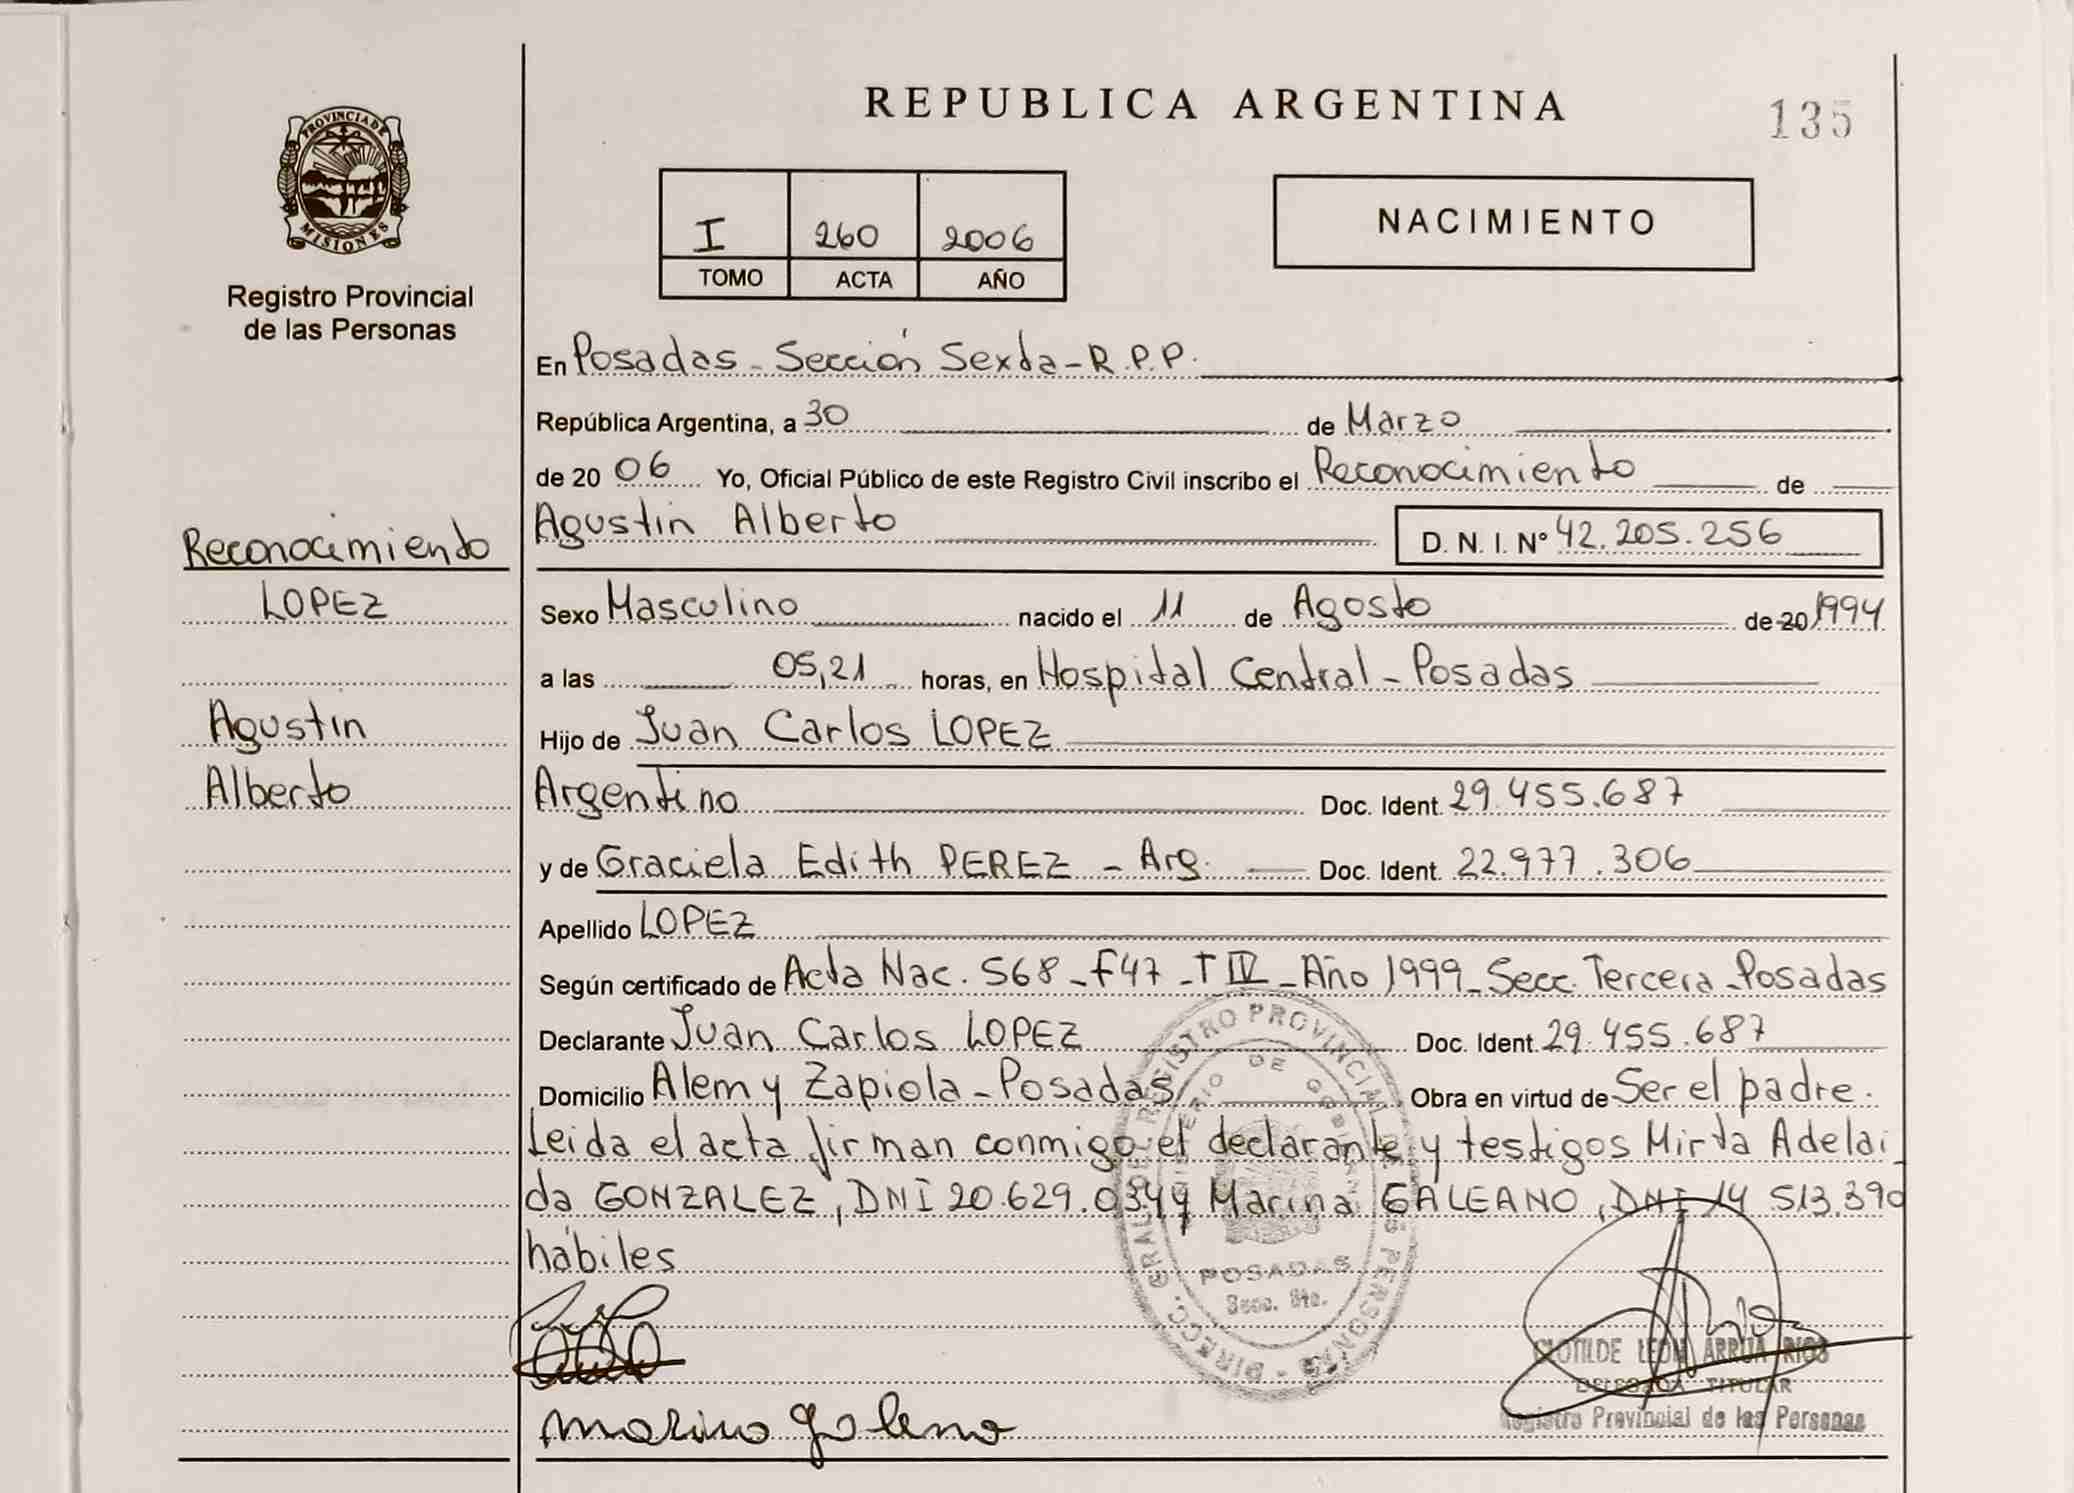 REPUBLICA ARGENTINA
135
PROVINCIA DE
MISIONES
Registro Provincial
de las Personas
I 260 2006
TOMO ACTA AÑO
NACIMIENTO
En Posadas - Sección Sexta - R.P.P.
República Argentina, a 30 de Marzo
de 20 06 Yo, Oficial Público de este Registro Civil inscribo el Reconocimiento de
Agustin Alberto D. N. I. Nº 42.205.256
Reconocimiento
LOPEZ
Agustin
Alberto
Sexo Masculino nacido el 11 de Agosto de 20 1994
a las 05,21 horas, en Hospital Central - Posadas
Hijo de Juan Carlos LOPEZ
Argentino Doc. Ident. 29.455.687
y de Graciela Edith PEREZ - Arg. Doc. Ident. 22.977.306
Apellido LOPEZ
Según certificado de Acta Nac. 568 - F47 - T IV - Año 1999 - Secc. Tercera - Posadas
Declarante Juan Carlos LOPEZ Doc. Ident. 29.455.687
Domicilio Alem y Zapiola - Posadas Obra en virtud de Ser el padre.
Leida el acta firman conmigo el declarante y testigos Mirta Adelai
da GONZALEZ, DNI 20.629.034 y Marina GALEANO, DNI 14 513.390
hábiles
DIRECC. GRAL. DE REGISTRO PROVINCIAL DE LAS PERSONAS
MINISTERIO DE GOBIERNO
POSADAS
Secc. 6ta.
marina galeano
CLOTILDE LEON ARRUA RIOS
DELEGADA TITULAR
Registro Provincial de las Personas